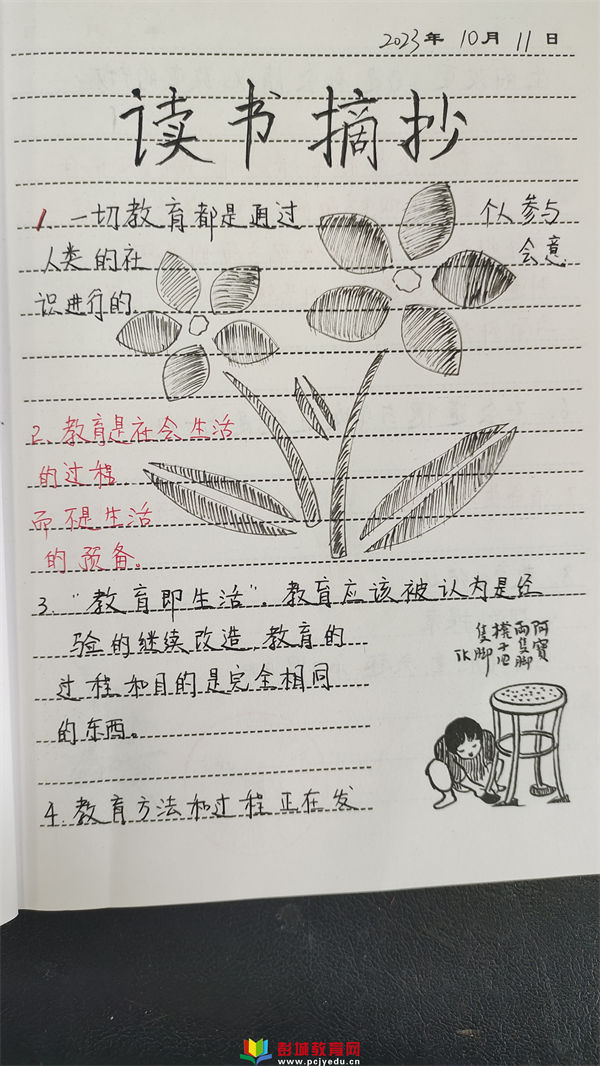 2023年 10月 11日
读书摘抄
1、一切教育都是通过 个人参与
人类的社 会意
识进行的
2、教育是社会生活
的过程
而不是生活
的预备。
3、"教育即生活"。教育应该被认为是经
验的继续改造,教育的
过程和目的是完全相同
的东西。
阿寶
兩隻腳
凳子
四隻腳
4、教育方法和过程正在发
彭城教育网
www.pcjyedu.cn